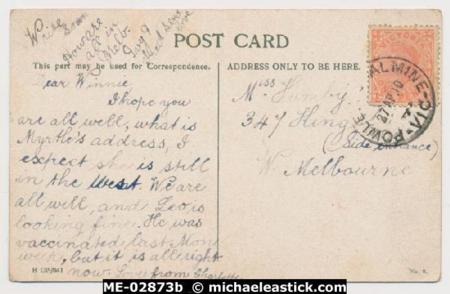 Write Soon
How are
all in
Melb.
POST CARD
This part may be used for Correspondence.
ADDRESS ONLY TO BE HERE.
Dear Winnie
I hope you
are all well, what is
Myrtle's address, I
expect she is still
in the West. We are
all well, and Leo is
looking fine. He was
vaccinated last Mon
week, but it is allright
now. Love from Charlotte
Miss
347 King
(Side entrance)
W. Melbourne
27 AP 10
ME-02873b © michaeleastick.com